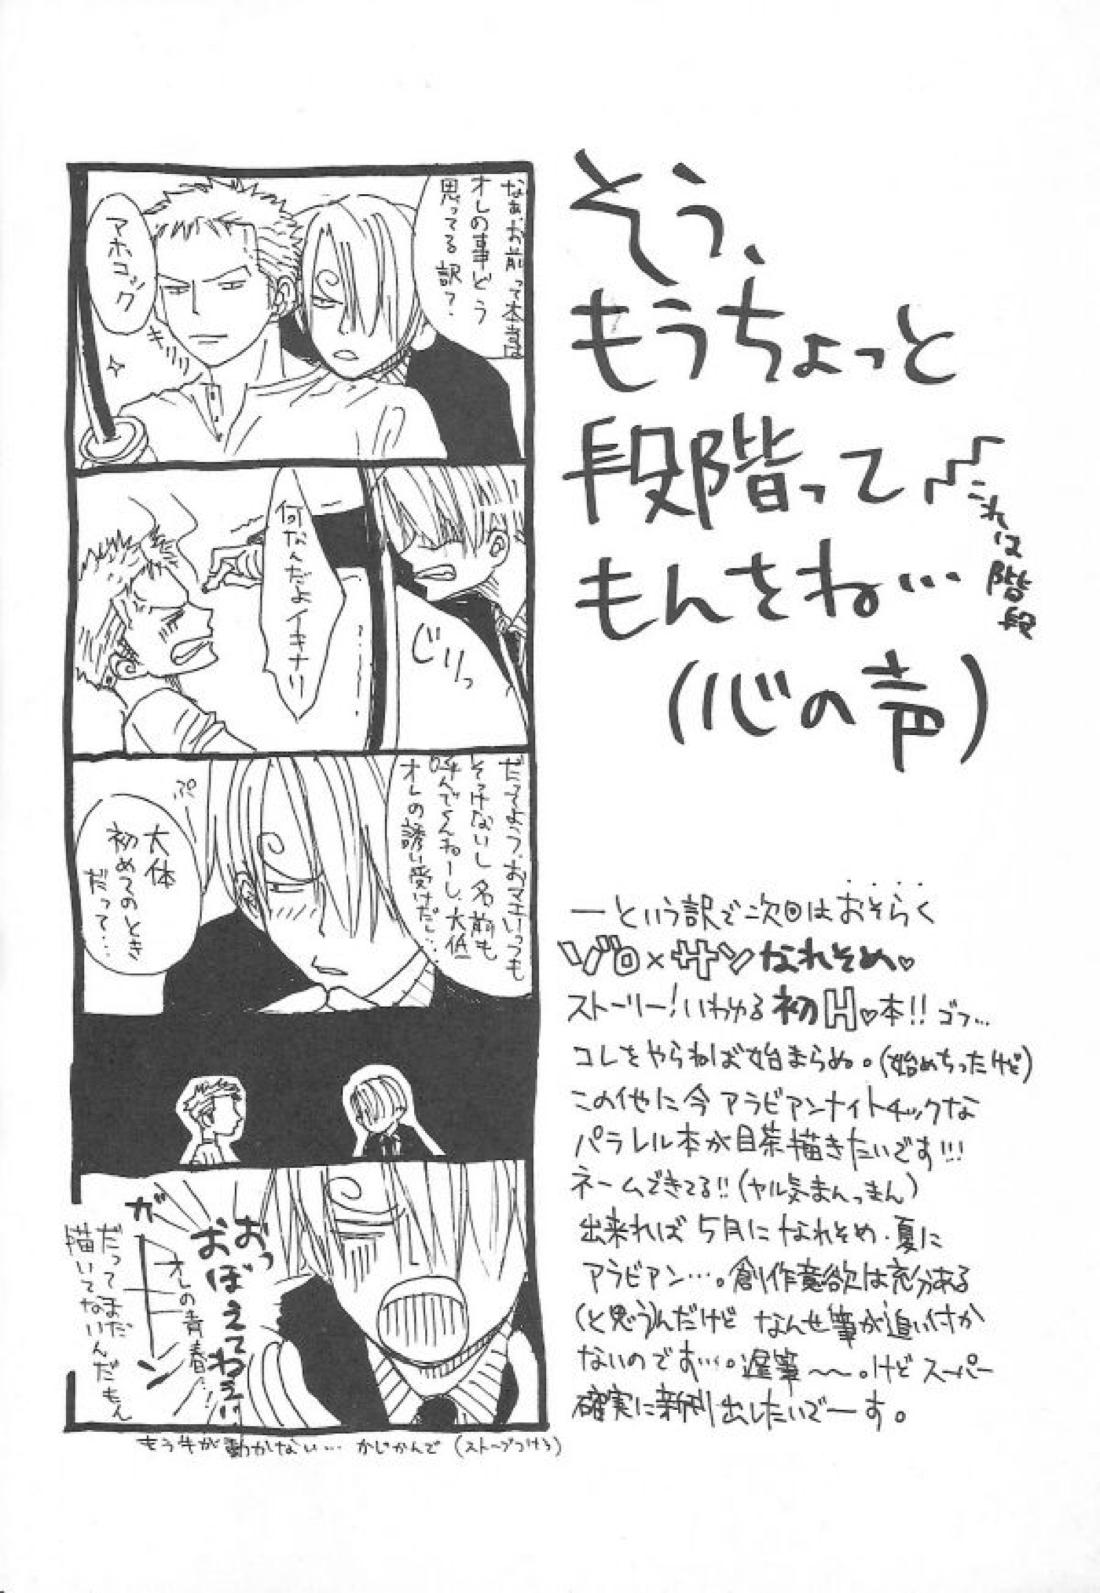 そう、
もうちょっと
段階って
もんをね…
(心の声)
これは階段
なぁ、お前って本当は
オレの事どう
思ってる訳?
アホコック
キリリ
何なんだよイキナリ
じりっ
だってよう、おマエいっつも
そっけないし名前も
呼んでくんねーし、大体
オレの誘い受けだし…
ぷ
大体
初めてのとき
だって…
おっ
おぼえてねぇ!!
オレの青春…!
ガーン
だってまだ
描いてないんだもん
もう手が動かない… かじかんで (ストーブつけろ)
―という訳で次回はおそらく
ゾロ×サンなれそめ♥
ストーリー!いわゆる初H♥本!! ゴフ…
コレをやらねば始まらぬ。(始めちったけど)
この他に今アラビアンナイトチックな
パラレル本が目茶描きたいです!!!
ネームできてる!!(ヤル気まんっまん)
出来れば5月になれそめ・夏に
アラビアン…。創作意欲は充分ある
(と思う)んだけど なんせ筆が追い付か
ないのです…。遅筆〜〜。けどスーパー
確実に新刊出したいでーす。